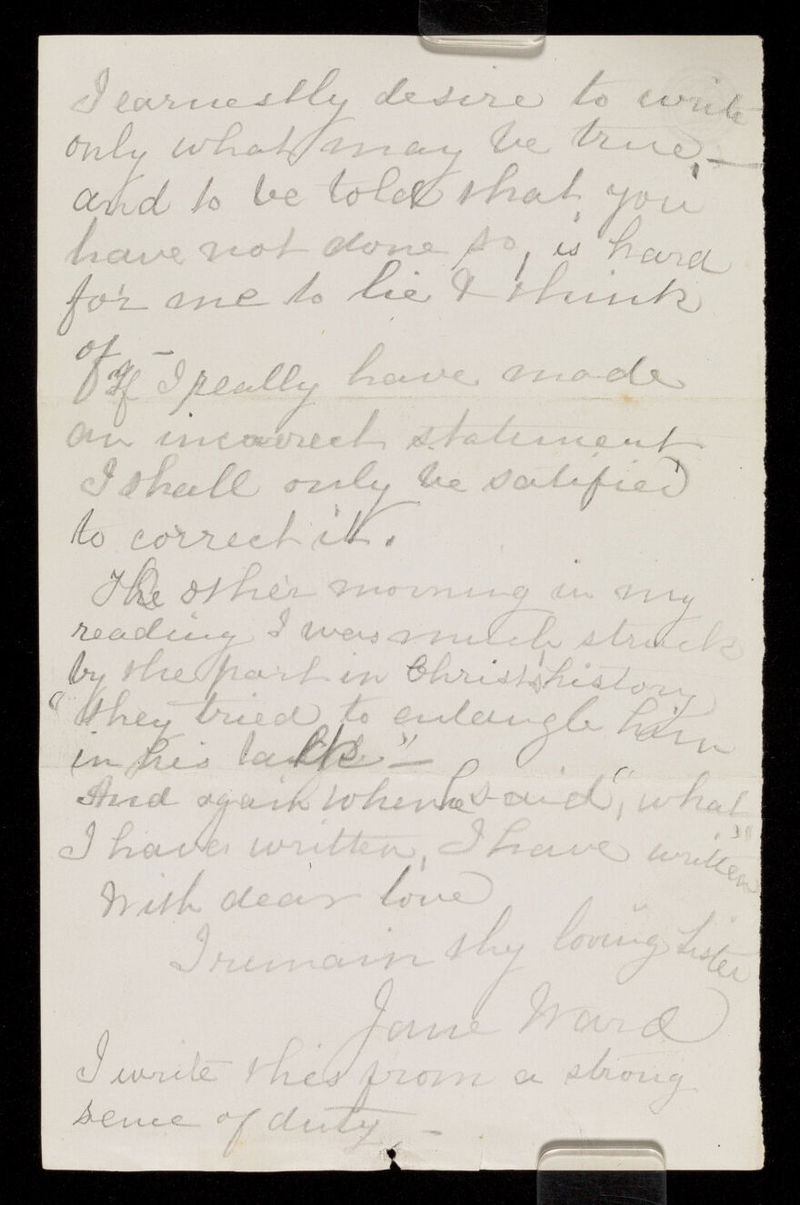 I earnestly desire to write
only what may be true, —
and to be told that you
have not done so, is hard
for me to lie & think
of —
If I really have made
an incorrect statement
I shall only be satified
to correct it.
The other morning in my
reading I was much struck
by the part in Christ's history
"they tried to entangle him
in his talk" —
And again when he said, "what
I have written, I have written"
With dear love
I remain thy loving Sister
Jane Ward
I write this from a strong
sense of duty, —